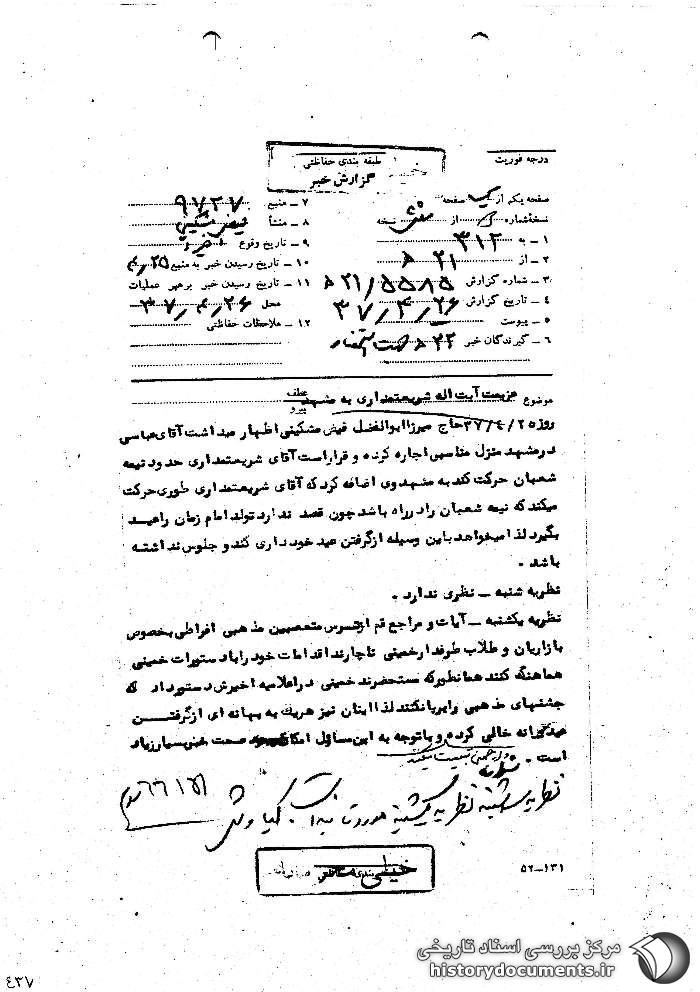 درجه فوریت
طبقه بندی حفاظتی
گزارش خبر
صفحه یکم از یک صفحه
نسخه شماره از شش نسخه
۱ ـ به ۳۱۲
۲ ـ از ۲۱ ه
۳ ـ شماره گزارش ۵۵۸۵ / ۲۱ ه
۴ ـ تاریخ گزارش ۳۷/۴/۲۶
۵ ـ پیوست
۶ ـ گیرندگان خبر ۲۲ ه جهت استحضار
۷ ـ منبع ۹۷۲۷
۸ ـ منشأ فیض مشکینی
۹ ـ تاریخ وقوع
۱۰ ـ تاریخ رسیدن خبر به منبع ۴/۲۵
۱۱ ـ تاریخ رسیدن خبر برهبر عملیات
محل ۳۷/۴/۲۶
۱۲ ـ ملاحظات حفاظتی
موضوع عزیمت آیت اله شریعتمداری به مشهد
عطف
پیرو
روز ۳۷/۴/۲۵ حاج میرزا ابوالفضل فیض مشکینی اظهار میداشت آقای عباسی
در مشهد منزل مناسبی اجاره کرده و قرار است آقای شریعتمداری حدود نیمه
شعبان حرکت کند به مشهد وی اضافه کرد که آقای شریعتمداری طوری حرکت
میکند که نیمه شعبان را در راه باشد چون قصد ندارد تولد امام زمان را عید
بگیرد لذا میخواهد باین وسیله از گرفتن عید خودداری کند و جلوس نداشته
باشد .
نظریه شنبه ـ نظری ندارد .
نظریه یکشنبه ـ آیات و مراجع قم از ترس متعصبین مذهبی افراطی بخصوص
بازاریان و طلاب طرفدار خمینی ناچارند اقدامات خود را با دستورات خمینی
هماهنگ کنند همانطور که مستحضرند خمینی در اعلامیه اخیرش دستور داد که
جشنهای مذهبی را برپا نکنند لذا اینان نیز هریک به بهانه ای از گرفتن
عید شانه خالی کرده و با توجه به این مسائل امکان صحت خبر بسیار زیاد
است . و از خمینی تبعیت میکنند
نظریه سه شنبه نظریه یکشنبه مورد تائید است . کیاوش
خیلی محرمانه
طبقه بندی حفاظتی
۵۲ـ۱۳۱
مرکز بررسی اسناد تاریخی
historydocuments.ir
٤٣٧